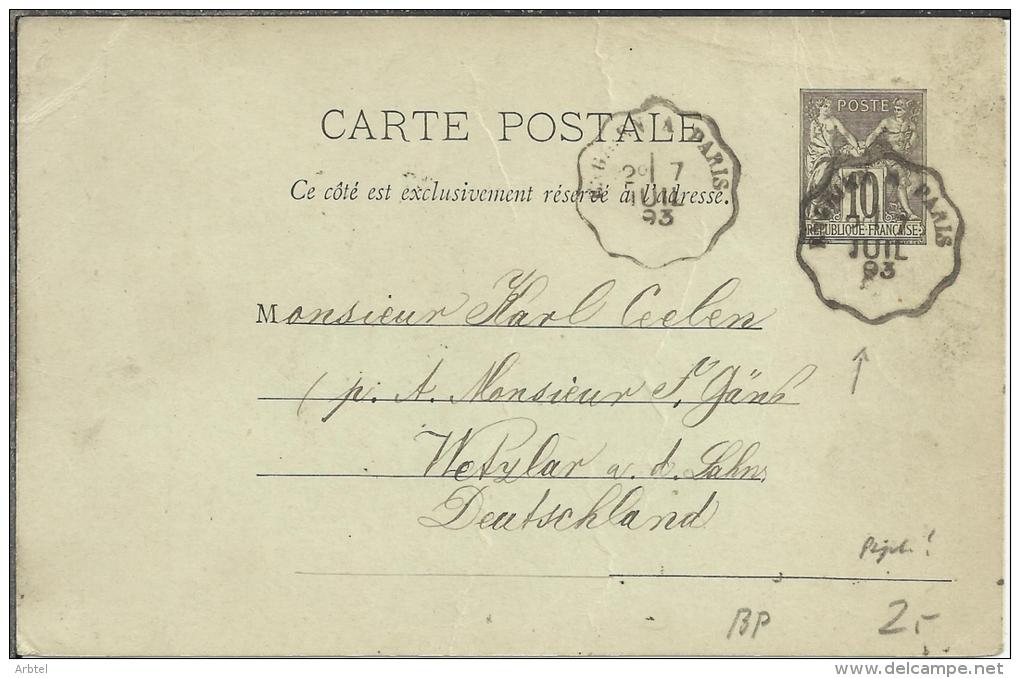 CARTE POSTALE
Ce côté est exclusivement réservé à l'adresse.
A PARIS
7
JUIL
93
POSTE
10
REPUBLIQUE FRANCAISE
PARIS
JUIL
93
Monsieur Karl Ceelen
(p. A. Monsieur F. Gäns
Wetzlar a. d. Lahn
Deutschland
BP
2,-
Arbtel
delcampe.net